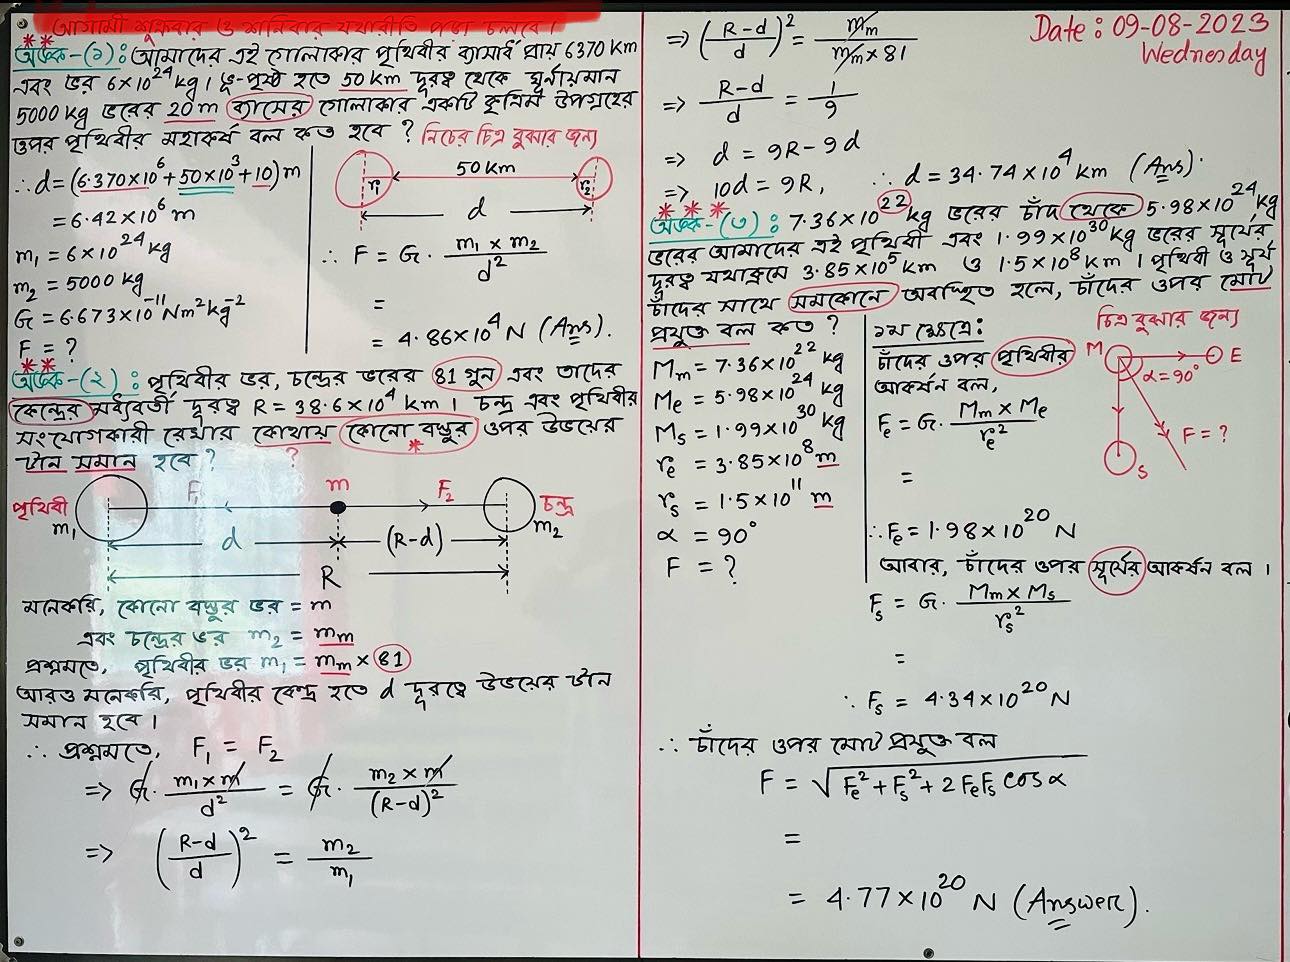 আগামী শুক্রবার ও শনিবার যথারীতি পড়া চলবে।
অংক-(১): আমাদের এই গোলাকার পৃথিবীর ব্যাসার্ধ প্রায় 6370 Km
এবং ভর 6×10²⁴ kg। ভূ-পৃষ্ঠ হতে 50 km দূরত্ব থেকে ঘূর্নায়মান
5000 kg ভরের 20 m ব্যাসের গোলাকার একটি কৃত্রিম উপগ্রহের
ওপর পৃথিবীর মহাকর্ষ বল কত হবে? নিচের চিত্র বুঝার জন্য
∴ d = (6.370×10⁶ + 50×10³ + 10) m
= 6.42×10⁶ m
m₁ = 6×10²⁴ kg
m₂ = 5000 kg
G = 6.673×10⁻¹¹ Nm²kg⁻²
F = ?
r₁ 50 Km r₂
d
∴ F = G · (m₁ × m₂)/d²
=
= 4.86×10⁴ N (Ans).
অংক-(২): পৃথিবীর ভর, চন্দ্রের ভরের 81 গুন এবং তাদের
কেন্দ্রের মধ্যবর্তী দূরত্ব R = 38.6×10⁴ km। চন্দ্র এবং পৃথিবীর
সংযোগকারী রেখার কোথায় কোনো বস্তুর ওপর উভয়ের
টান সমান হবে? ?
পৃথিবী m₁ F₁ m F₂ চন্দ্র m₂
d (R-d)
R
মনেকরি, কোনো বস্তুর ভর = m
এবং চন্দ্রের ভর m₂ = mₘ
প্রশ্নমতে, পৃথিবীর ভর m₁ = mₘ × 81
আরও মনেকরি, পৃথিবীর কেন্দ্র হতে d দূরত্বে উভয়ের টান
সমান হবে।
∴ প্রশ্নমতে, F₁ = F₂
⇒ G · (m₁ × m)/d² = G · (m₂ × m)/(R-d)²
⇒ ((R-d)/d)² = m₂/m₁
Date : 09-08-2023
Wednesday
⇒ ((R-d)/d)² = mₘ/(mₘ × 81)
⇒ (R-d)/d = 1/9
⇒ d = 9R - 9d
⇒ 10d = 9R, ∴ d = 34.74×10⁴ km (Ans).
অংক-(৩): 7.36×10²² kg ভরের চাঁদ থেকে 5.98×10²⁴ kg
ভরের আমাদের এই পৃথিবী এবং 1.99×10³⁰ kg ভরের সূর্যের
দূরত্ব যথাক্রমে 3.85×10⁵ km ও 1.5×10⁸ Km। পৃথিবী ও সূর্য
চাঁদের সাথে সমকোনে অবস্থিত হলে, চাঁদের ওপর মোট
প্রযুক্ত বল কত?
Mₘ = 7.36×10²² kg
Mₑ = 5.98×10²⁴ kg
Mₛ = 1.99×10³⁰ kg
rₑ = 3.85×10⁸ m
rₛ = 1.5×10¹¹ m
α = 90°
F = ?
১ম ক্ষেত্রে:
চাঁদের ওপর পৃথিবীর
আকর্ষন বল,
Fₑ = G · (Mₘ × Mₑ)/rₑ²
=
∴ Fₑ = 1.98×10²⁰ N
চিত্র বুঝার জন্য
M E
α = 90°
F = ?
S
আবার, চাঁদের ওপর সূর্যের আকর্ষন বল।
Fₛ = G · (Mₘ × Mₛ)/rₛ²
=
∴ Fₛ = 4.34×10²⁰ N
∴ চাঁদের ওপর মোট প্রযুক্ত বল
F = √(Fₑ² + Fₛ² + 2FₑFₛ cos α)
=
= 4.77×10²⁰ N (Answer).